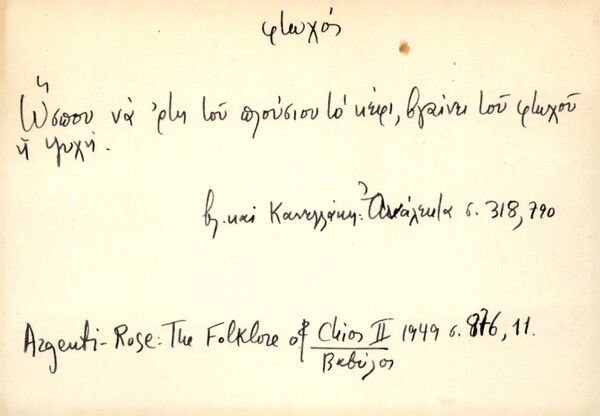 φτωχός
Ὥσπου νὰ ἔρτη τοῦ πλούσιου τὸ κέφι, βγαίνει τοῦ φτωχοῦ
ἡ ψυχή.
βλ. καὶ Κανελλάκη: Ἀνάλεκτα σ. 318, 790
Argenti-Rose: The Folklore of Chios II 1949 σ. , 11.
Βαβύλος